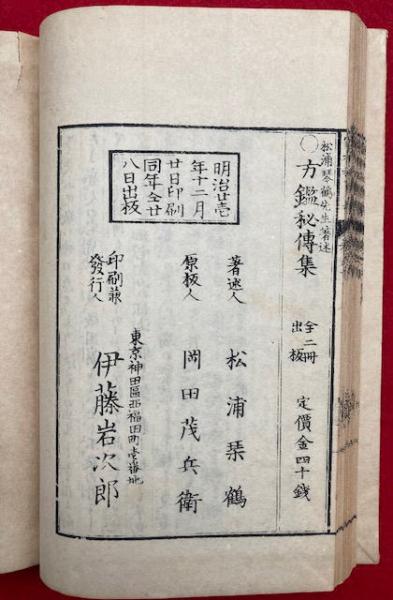 松浦琴鶴先生著述
〇方鑑秘傳集
全二冊
出板
定價金四十錢
著述人
松浦琹鶴
原板人
岡田茂兵衛
明治廿壱
年十二月
廿日印刷
同年仝廿
八日出板
印刷兼
發行人
東京神田區西福田町壱番地
伊藤岩次郎